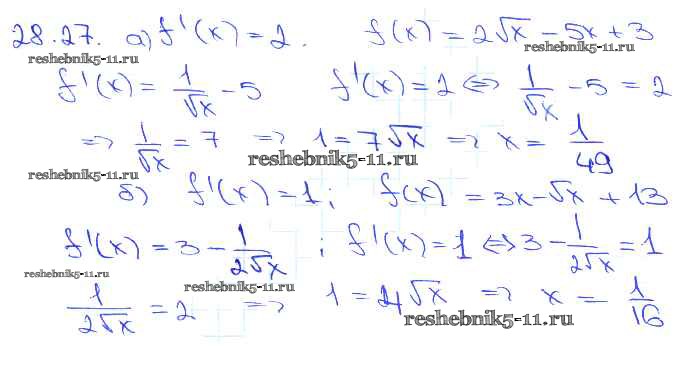 28.27. а) f'(x) = 2. f(x) = 2√x − 5x + 3
reshebnik5-11.ru
reshebnik5-11.ru
f'(x) = 1/√x − 5 f'(x) = 2 ⇔ 1/√x − 5 = 2
⇒ 1/√x = 7 ⇒ 1 = 7√x ⇒ x = 1/49
reshebnik5-11.ru
reshebnik5-11.ru
б) f'(x) = 1; f(x) = 3x − √x + 13
f'(x) = 3 − 1/2√x ; f'(x) = 1 ⇔ 3 − 1/2√x = 1
reshebnik5-11.ru
reshebnik5-11.ru
1/2√x = 2 ⇒ 1 = 4√x ⇒ x = 1/16
reshebnik5-11.ru